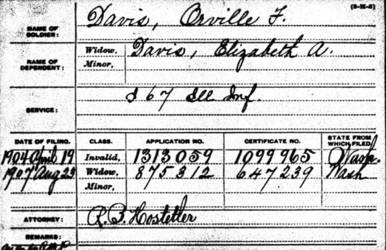 (3-H-8)
NAME OF SOLDIER: Davis, Orville F.
NAME OF DEPENDENT: Widow, Davis, Elizabeth A.
Minor,
SERVICE: J 67 Ill Inf.
DATE OF FILING. CLASS. APPLICATION NO. CERTIFICATE NO. STATE FROM WHICH FILED.
1904 April 19 Invalid, 1313059 1099965 Wash.
1907 Aug 23 Widow, 875312 647239 Wash
Minor,
ATTORNEY: R.B. Hostetler
REMARKS: